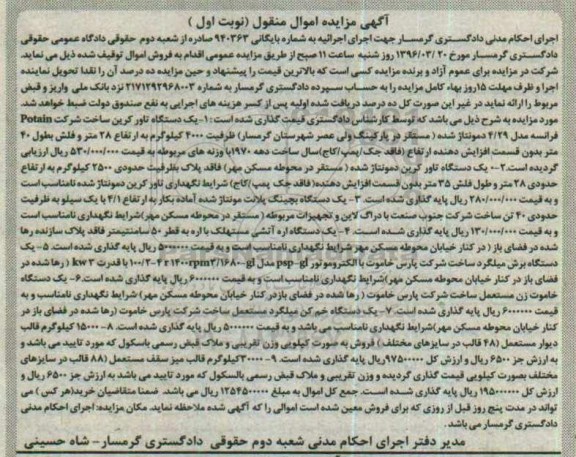 آگهی مزایده اموال منقول (نوبت اول )
اجرای احکام مدنی دادگستری گرمسار جهت اجرای اجرائیه به شماره بایگانی ۹۴۰۳۶۳ صادره از شعبه دوم حقوقی دادگاه عمومی حقوقی
دادگستری گرمسار مورخ ۱۳۹۶/۰۳/۲۰ روز شنبه ساعت ۱۱ صبح از طریق مزایده عمومی اقدام به فروش اموال توقیف شده ذیل می نماید.
شرکت در مزایده برای عموم آزاد و برنده مزایده کسی است که بالاترین قیمت را پیشنهاد و حین مزایده ده درصد آن را نقدا تحویل نماینده
اجرا و ظرف مهلت ۱۵روز بهاء کامل مزایده را به حساب سپرده دادگستری گرمسار به شماره ۲۱۷۱۲۹۲۹۶۸۰۰۳ نزد بانک ملی واریز و قبض
مربوط را ارائه نماید در غیر این صورت کل ده درصد دریافت شده اولیه پس از کسر هزینه های اجرایی به نفع صندوق دولت ضبط خواهد شد.
مورد مزایده به شرح ذیل می باشد که توسط کارشناس دادگستری قیمت گذاری شده است :۱-یک دستگاه تاور کرین ساخت شرکت Potain
فرانسه مدل ۴/۲۹ دمونتاژ شده ( مستقر در پارکینگ ولی عصر شهرستان گرمسار) ظرفیت ۴۰۰۰ کیلوگرم به ارتفاع ۲۸ متر و فلش بطول ۴۰
متر بدون قسمت افزایش دهنده ارتفاع (فاقد جک/پمپ/کاج)سال ساخت دهه ۱۹۷۰با وزنه های مربوطه به قیمت ۵۳۰/۰۰۰/۰۰۰ ریال ارزیابی
گردیده است.۲-- یک دستگاه تاور کرین دمونتاژ شده ( مستقر در محوطه مسکن مهر) فاقد پلاک بظرفیت حدودی ۲۵۰۰ کیلوگرم به ارتفاع
حدودی ۲۸ متر و طول فلش ۳۵ متر بدون قسمت افزایش دهنده(فاقد جک پمپ/کاج) شرایط نگهداری تاور کرین دمونتاژ شده نامناسب است
و به قیمت ۲۸۰/۰۰۰/۰۰۰ ریال پایه گذاری شده است. ۳- یک دستگاه بچینگ پلانت مونتاژ شده آماده بکار به ارتفاع ۴/۱ با یک سیلو به ظرفیت
حدودی ۴۰ تن ساخت شرکت جنوب صنعت با دراگ لاین و تجهیزات مربوطه ( مستقر در محوطه مسکن مهر)شرایط نگهداری نامناسب است
و به قیمت ۱۳۰/۰۰۰/۰۰۰ ریال پایه گذاری شده است. ۴- یک دستگاه اره آتشی مستهلک با اره به قطر ۵۰ سانتیمتر فاقد پلاک سازنده رها
شده در فضای باز ( در کنار خیابان محوطه مسکن مهر شرایط نگهداری نامناسب است و به قیمت ۵۰۰۰۰۰۰ ریال پایه گذاری شده است. ۵- یک
دستگاه برش میلگرد ساخت شرکت پارس خاموت با الکتروموتور
فضای باز در کنار خیابان محوطه مسکن مهر)شرایط نگهداری نامناسب است و به قیمت ۶۰۰۰۰۰۰ ریال پایه گذاری شده است.۶- یک دستگاه
خاموت زن مستعمل ساخت شرکت پارس خاموت ( رها شده در فضای باز در کنار خیابان محوطه مسکن مهر) شرایط نگهداری نامناسب و به
قیمت ۶۰۰۰۰۰۰ ریال پایه گذاری شده است. ۷- یک دستگاه خم کن میلگرد مستعمل ساخت شرکت پارس خاموت (رها شده در فضای باز در
کنار خیابان محوطه مسکن مهر)شرایط نگهداری نامناسب می باشد و به قیمت ۵۰۰۰۰۰۰ ریال پایه گذاری شده است. ۸- ۱۵۰۰۰ کیلوگرم قالب
دیوار مستعمل (۴۸ قالب در سایزهای مختلف ) فروش به صورت کیلویی وزن تقریبی و ملاک قبض رسمی باسکول که مورد تایید می باشد و
به ارزش جز ۶۵۰۰ ریال و ارزش کل ۹۷۵۰۰۰۰۰ریال پایه گذاری شده است. ۹- ۳۰۰۰۰کیلوگرم قالب میز سقف مستعمل (۸۸ قالب در سایزهای
مختلف بصورت کیلویی قیمت گذاری گردیده و وزن تقریبی و ملاک قبض رسمی باسکول که مورد تایید می باشد به ارزش جز ۶۵۰۰ ریال و
ارزش کل ۱۹۵۰۰۰۰۰۰ ریال پایه گذاری شده است. جمع کل اموال به مبلغ ۱۲۵۴۵۰۰۰۰۰ ریال می باشد. ضمنا متقاضیان خرید(هر کس ) می
تواند در مدت پنج روز قبل از روزی که برای فروش معین شده است اموالی را که آگهی شده ملاحظه نماید. مکان مزایده: اجرای احکام مدنی
دادگستری گرمسار می باشد.
مدیر دفتر اجرای احکام مدنی شعبه دوم حقوقی دادگستری گرمسار- شاه حسینی